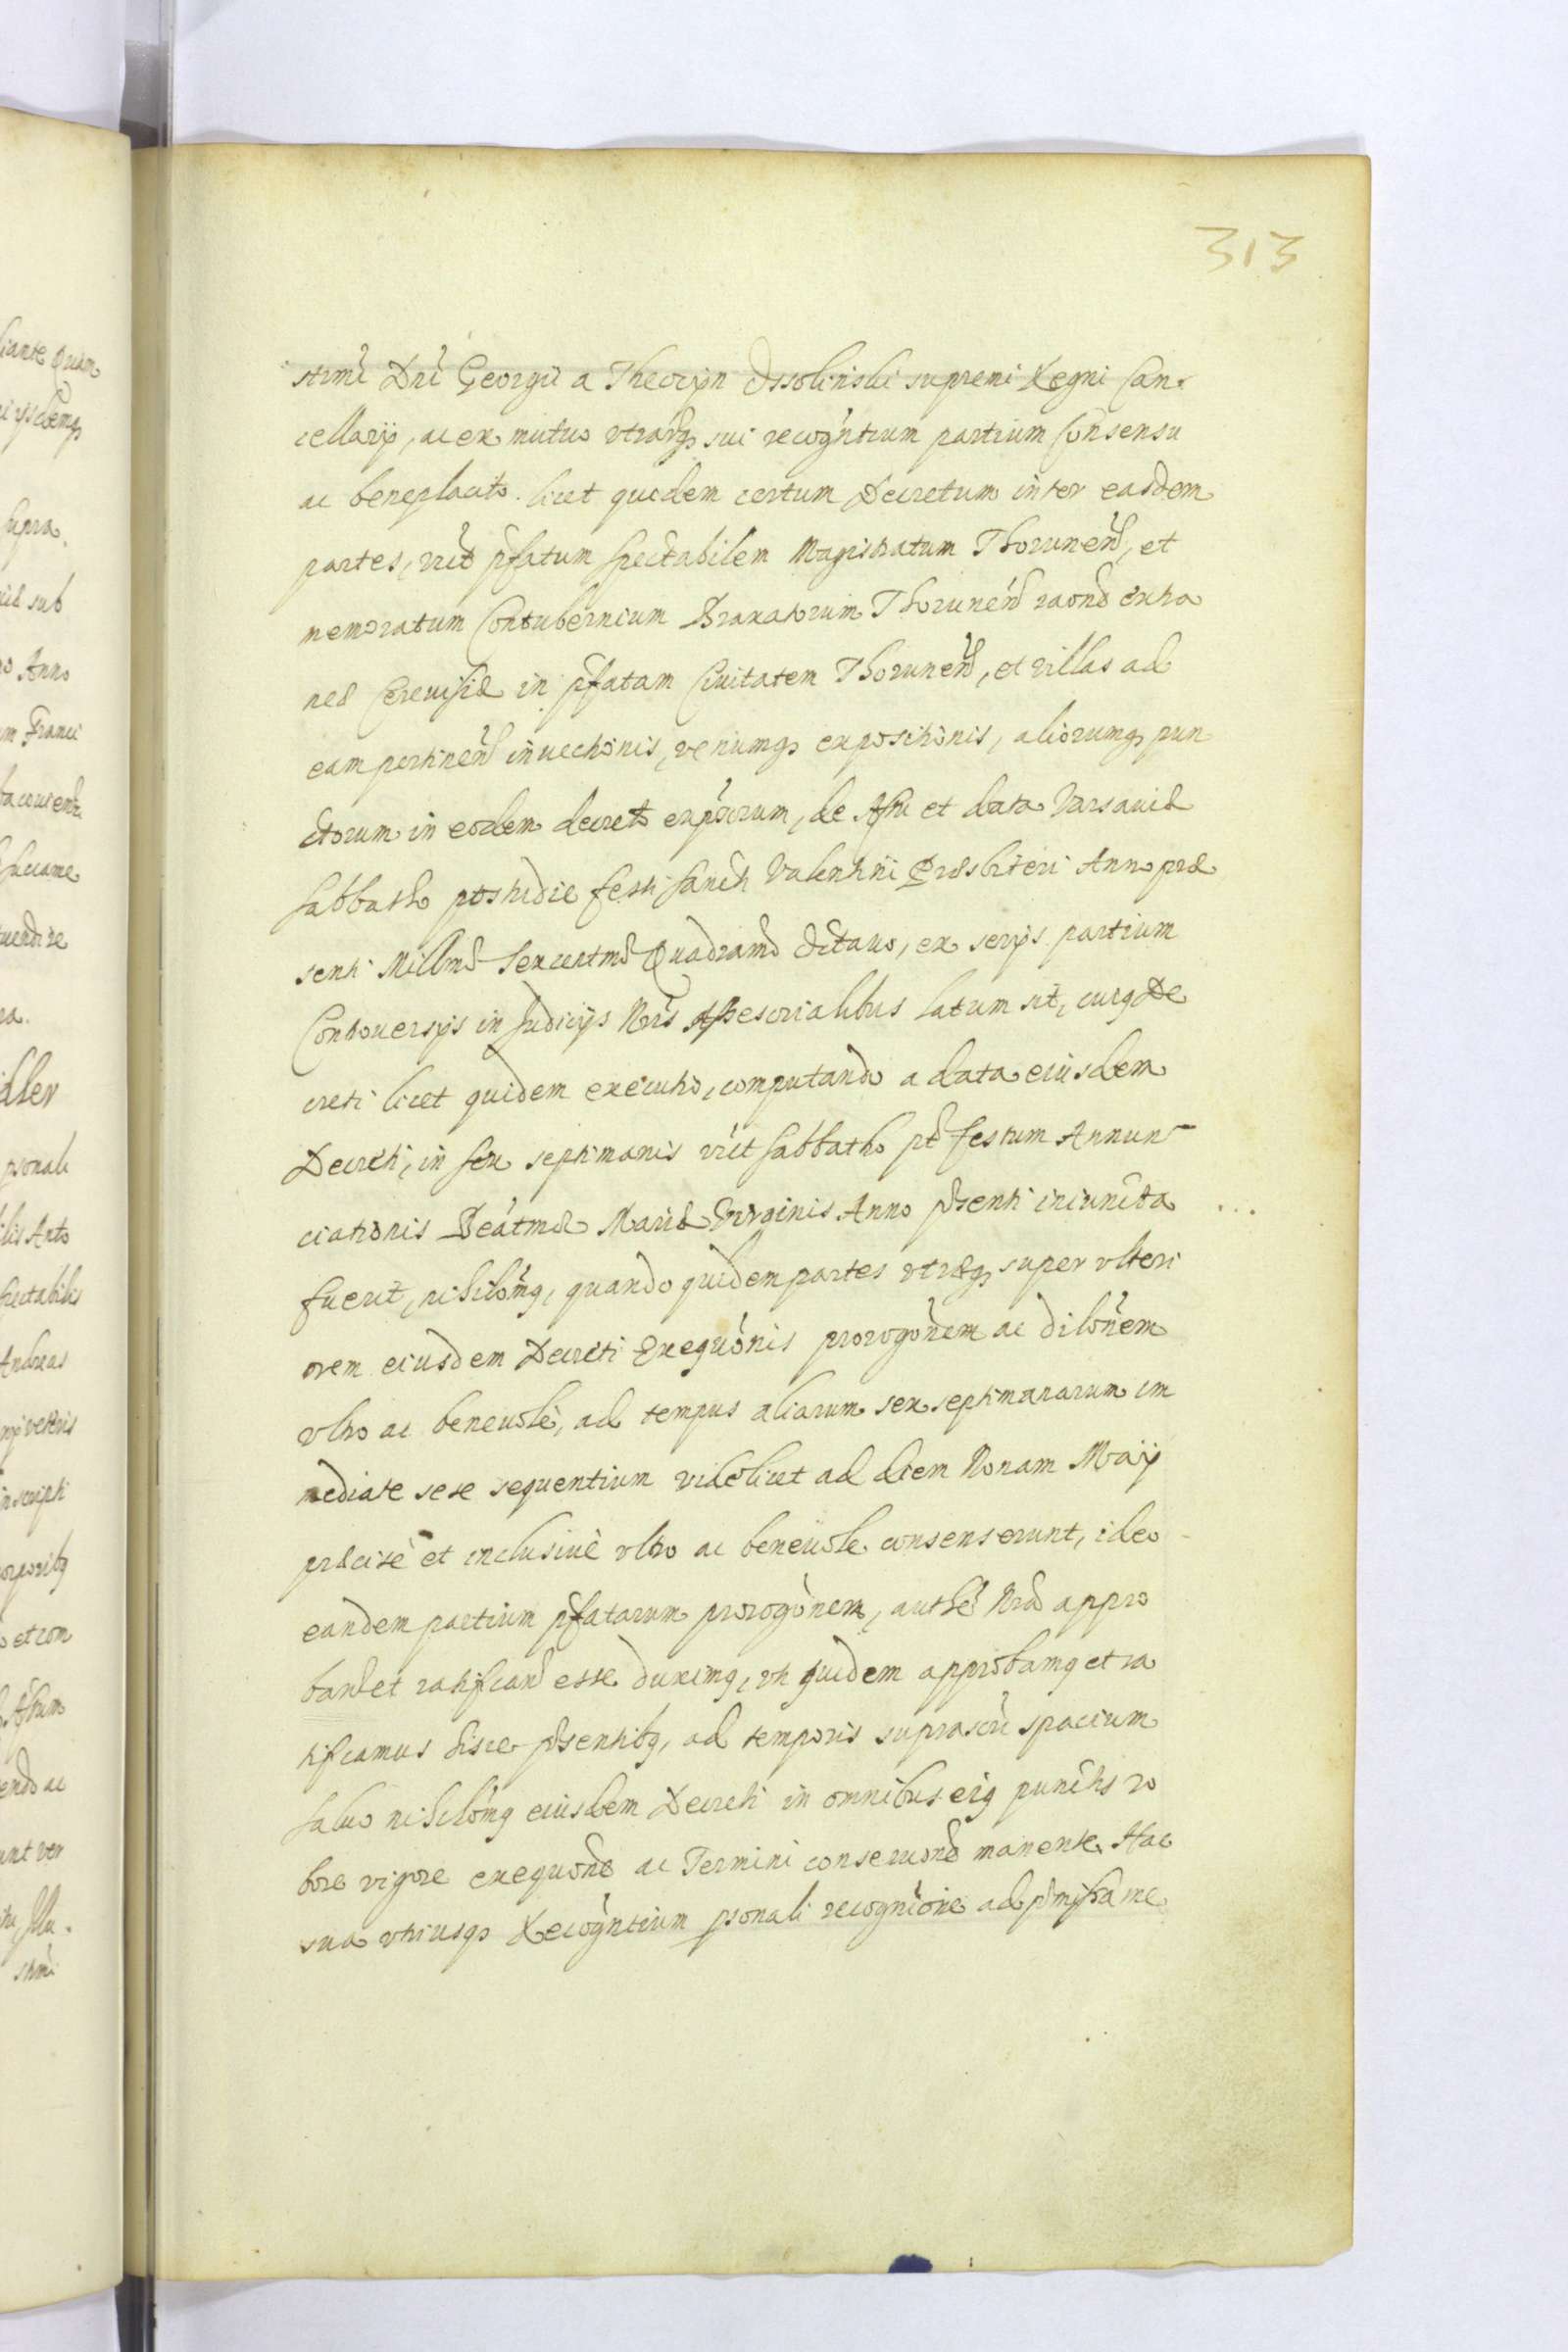 313
strmi Dni Georgii a Theczyn Ossolinski supremi Regni Can-
cellarij, ac ex mutuo vtrarq₃ sui recogntium partium Consensu
ac beneplacito. licet quidem certum Decretum inter easdem
partes, vict pfatum spectabilem Magistratum Thorunen, et
memoratum Contubernium Braxatorum Thorunen raone extra
neæ Cereuisiæ in pfatam Ciuitatem Thorunen, et villas ad
eam pertinen inuectionis, venumq₃ expositionis, aliorumq₃ pun
ctorum in eodem decreto exprorum, de Actu et data Varsauiæ
Sabbatho postridie festi Sancti Valentini Præsbiteri Anno præ
senti Millmo Sexcentmo Quadramo Octauo, ex serijs partium
Controuersijs in Judicijs Nris Assessorialibus latum sit, cuiq₃ De
creti licet quidem executio, computando a data eiusdem
Decreti, in sex septimanis vict Sabbatho pt festum Annun-
ciationis Beatmæ Mariæ Virginis Anno psenti iniuncta
fuerit, nihilomq₃, quando quidem partes vtræq₃ super vlteri
orem eiusdem Decreti Exequonis prorogonem ac dilonem
vltro ac beneuole, ad tempus aliarum sex septimanarum im
mediate sese sequentium videlicet ad diem Nonam Maij
præcise et inclusiue vltro ac beneuole consenserunt, ideo
eandem partium pfatarum prorogonem, authe Nra appro
band et ratificand esse duximq₃, vti quidem approbamq₃ et ra
tificamus hisce psentibq₃, ad temporis suprascri spacium
saluo nihilomq₃ eiusdem Decreti in omnibus eiq₃ punctis ro
bore vigore exequone ac Termini conseruone manente. Hac
sua vtriusq₃ Recogntium psonali recognicione ad pmissa me